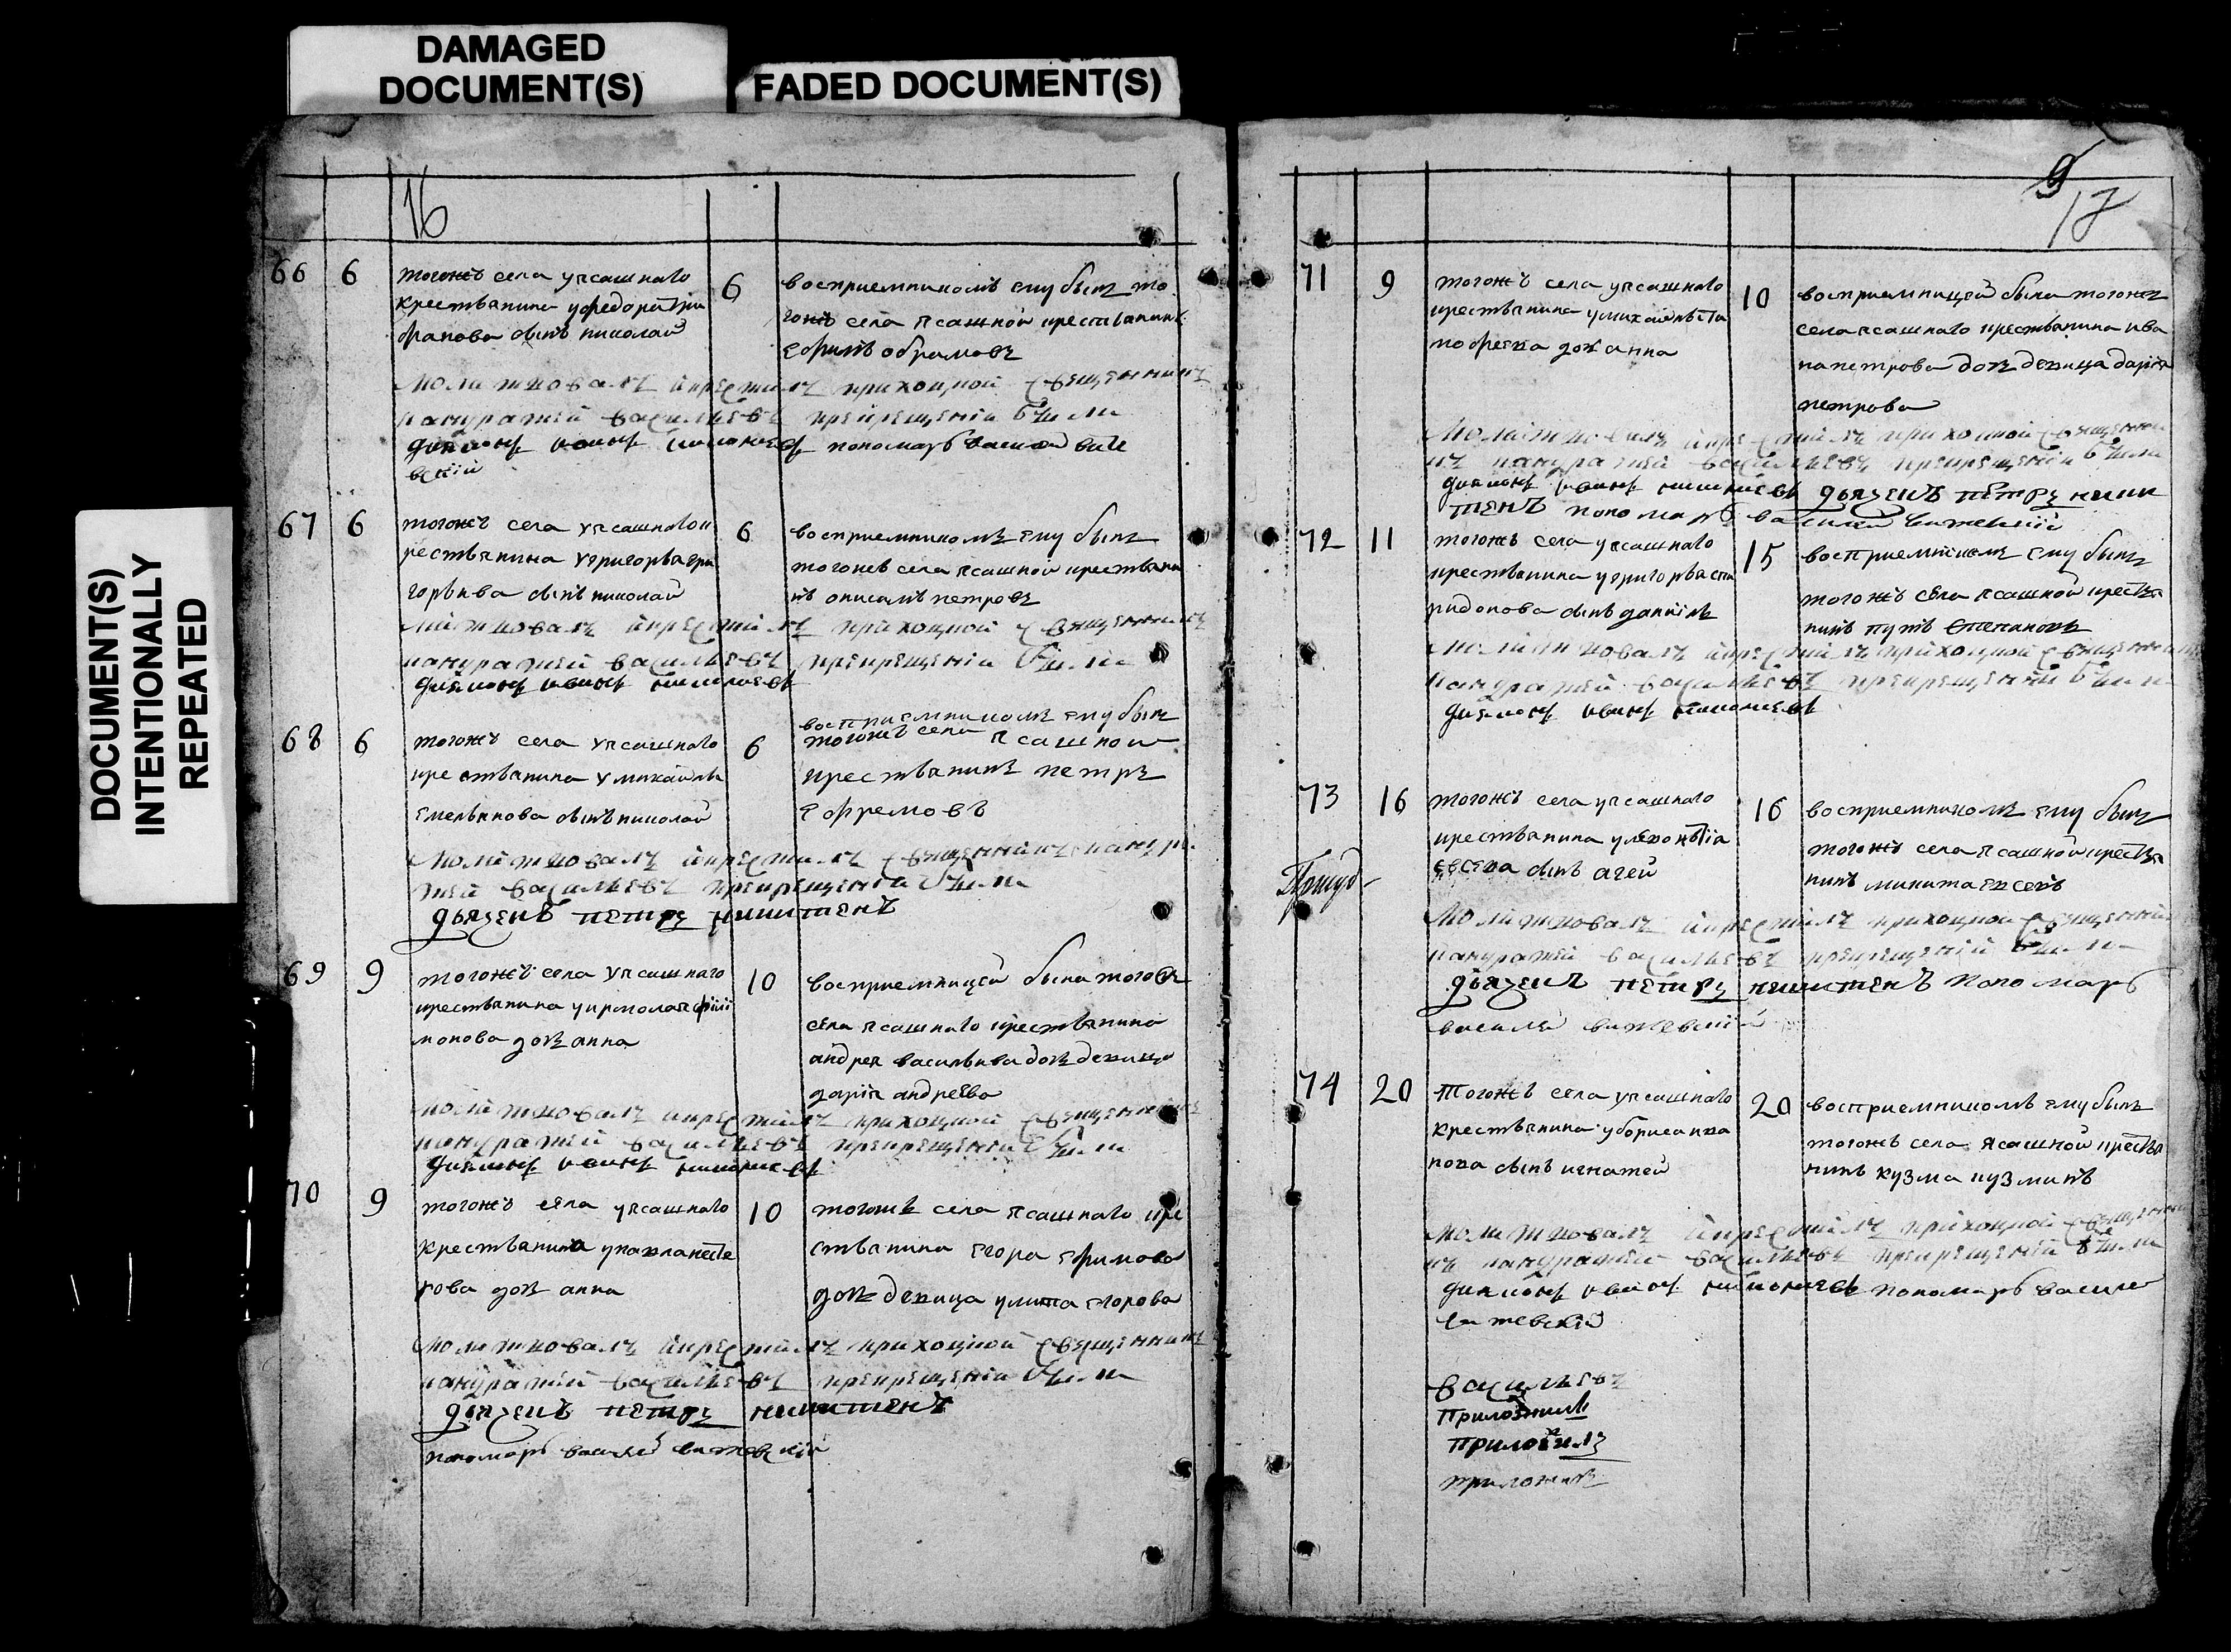 DAMAGED
DOCUMENT(S)
FADED DOCUMENT(S)
DOCUMENT(S)
INTENTIONALLY
REPEATED
16
66 6 тогожъ села уясашнаго
крестьянина уфедора три
фанова сынъ николай
6 восприемникомъ ему былъ то
гожъ села ясашной крестьянинъ
ефимъ
молитвовалъ и крестилъ приходной священникъ
васильевъ при крещении были
диаконъ иванъ пономарь
67 6 тогожъ села уясашнаго к
рестьянина угригорья гри
горьева сынъ николай
6 восприемникомъ ему былъ
тогожъ села ясашной крестьяни
нъ петровъ
молитвовалъ и крестилъ приходной священникъ
васильевъ при крещении были
диаконъ иванъ
68 6 тогожъ села уясашнаго
крестьянина умихаила
емельянова сынъ николай
6 восприемникомъ ему былъ
тогожъ села ясашной
крестьянинъ петръ
ефремовъ
молитвовалъ и крестилъ священникъ
васильевъ при крещении были
дьячекъ петръ никитинъ
69 9 тогожъ села уясашнаго
крестьянина уирмолая
дочь анна
10 восприемницей была тогожъ
села ясашнаго крестьянина
андрея васильева дочь девица
дарья андреева
молитвовалъ и крестилъ приходной священникъ
васильевъ при крещении были
диаконъ иванъ
70 9 тогожъ села уясашнаго
крестьянина упавла несте
рова дочь анна
10 тогожъ села ясашнаго кре
стьянина егора ефимова
дочь девица улита егорова
молитвовалъ и крестилъ приходной священникъ
васильевъ при крещении были
дьячекъ петръ никитинъ
пономарь василей
9
17
71 9 тогожъ села уясашнаго
крестьянина умихаила
дочь анна
10 восприемницей была тогожъ
села ясашнаго крестьянина ива
на петрова дочь девица дарья
петрова
молитвовалъ и крестилъ приходной священни
къ васильевъ при крещении были
диаконъ иванъ дьячекъ петръ ники
тинъ пономарь василей
72 11 тогожъ села уясашнаго
крестьянина угригорья спи
ридонова сынъ даниилъ
15 восприемникомъ ему былъ
тогожъ села ясашной крестья
нинъ степановъ
молитвовалъ и крестилъ приходной священникъ
васильевъ при крещении были
диаконъ иванъ
73 16 тогожъ села уясашнаго
крестьянина улеонтiа
евсеева сынъ агей
16 восприемникомъ ему былъ
тогожъ села ясашной крестья
нинъ никита
молитвовалъ и крестилъ приходной священникъ
васильевъ при крещении были
дьячекъ петръ никитинъ пономарь
василей
74 20 тогожъ села уясашнаго
крестьянина убориса ива
нова сынъ игнатей
20 восприемникомъ ему былъ
тогожъ села ясашной крестья
нинъ кузма кузминъ
молитвовалъ и крестилъ приходной священни
къ васильевъ при крещении были
диаконъ иванъ пономарь василей
васильевъ
приложилъ
приложилъ
приложилъ